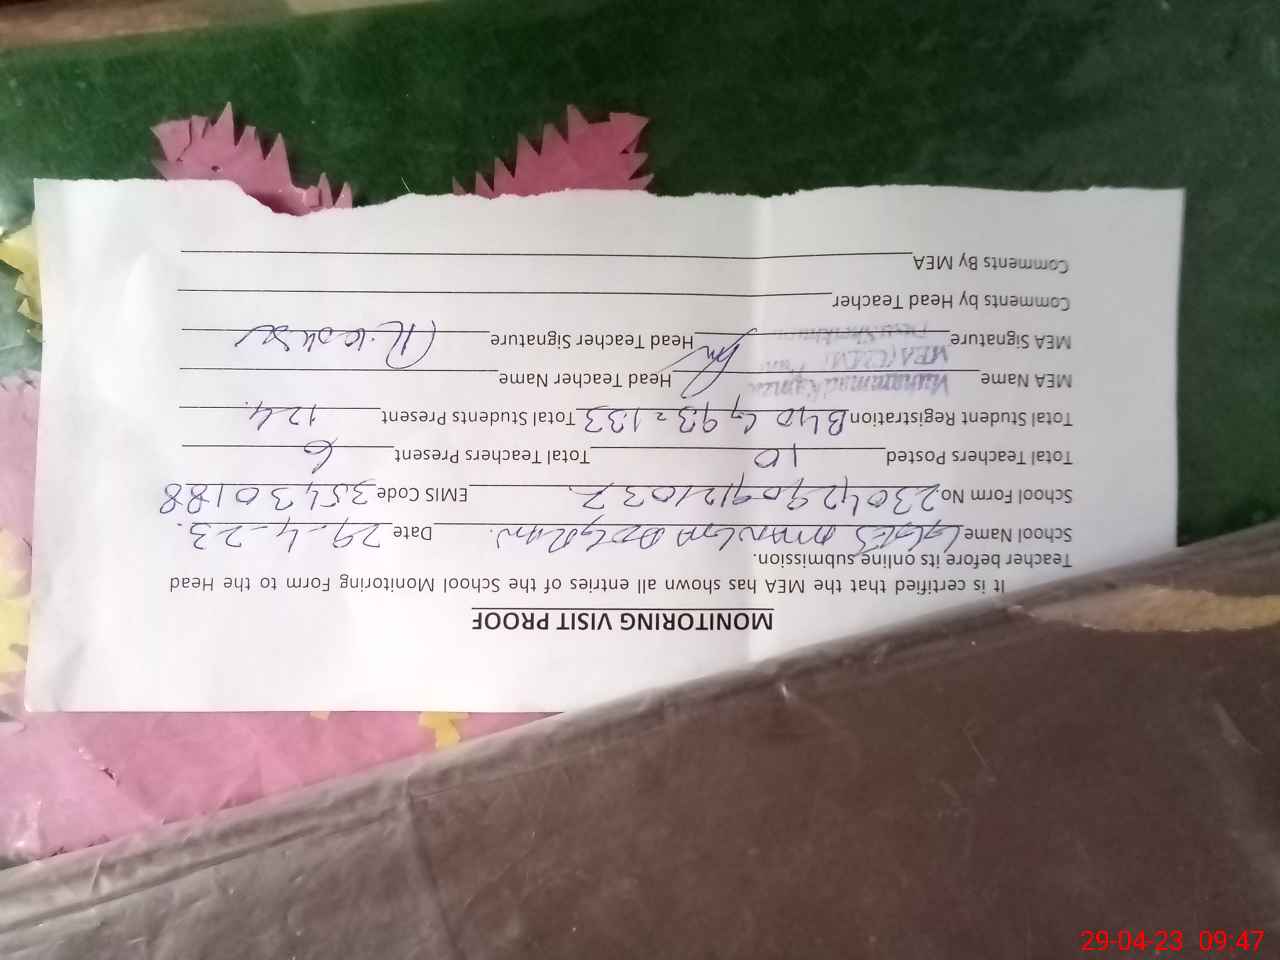 MONITORING VISIT PROOF
It is certified that the MEA has shown all entries of the School Monitoring Form to the Head
Teacher before its online submission.
School Name GGES Date 29-4-23.
School Form No. 23042909121037. EMIS Code 35430188
Total Teachers Posted 10 Total Teachers Present 6
Total Student Registration B40 G 93=133 Total Students Present 124.
MEA Name Muhammad Head Teacher Name
MEA (C&EM)
MEA Signature Head Teacher Signature
Comments by Head Teacher
Comments By MEA
29-04-23 09:47